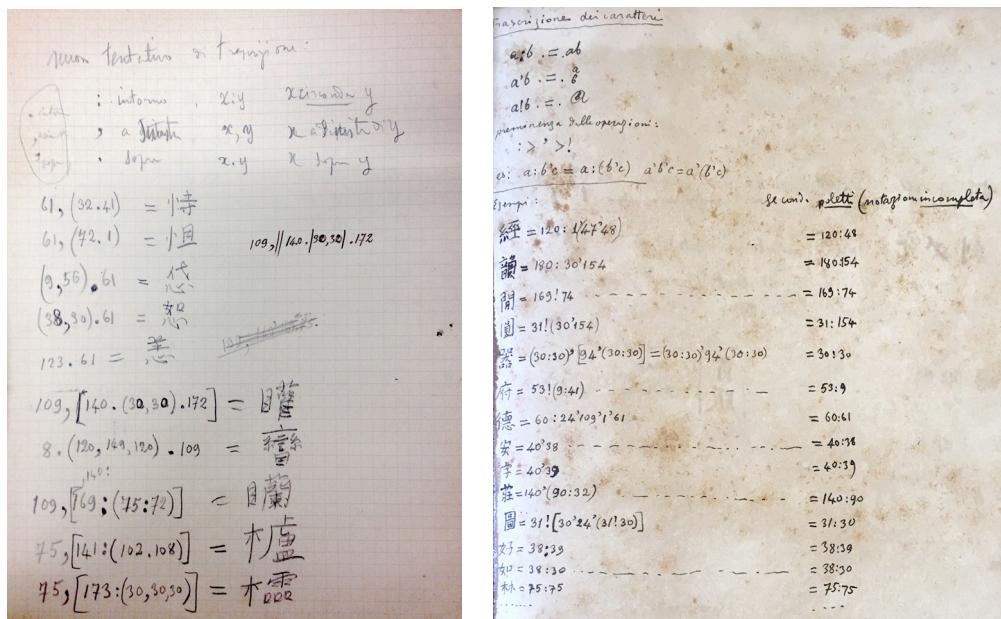 nuovo tentativo di trascrizione:
: intorno x:y x circonda y
, a destra x,y x a destra di y
. sopra x.y x sopra y
61,(32.41) = 恃
61,(72.1) = 怛
109,||140.|30,30|.172
(9,56).61 = 恷
(38,30).61 = 恕
123.61 = 恙
109,[140.(30,30).172] =
8.(120,149,120).109 =
,140:
109,[169:(75:72)] =
75,[141:(102.108)] = 櫨
75,[173:(30,30,30)] = 欞
Trascrizione dei caratteri
a:b .=. ab
a'b .=.
a!b .=.
preminenza delle operazioni:
: > ' > !
es: a:b'c = a:(b'c) a'b'c = a'(b'c)
Esempi: secondo poletti (notazion incompleta)
經 = 120:1'(47'48) = 120:48
韻 = 180:30'154 = 180:154
間 = 169!74 = 169:74
圓 = 31!(30'154) = 31:154
器 = (30:30)'[94'(30:30)] = (30:30)'94'(30:30) = 30:30
府 = 53!(9:41) = 53:9
德 = 60:24'109'1'61 = 60:61
安 = 40'38 = 40:38
字 = 40'39 = 40:39
莊 = 140'(90:32) = 140:90
圖 = 31![30'24'(31!30)] = 31:30
好 = 38:39 = 38:39
如 = 38:30 = 38:30
林 = 75:75 = 75:75